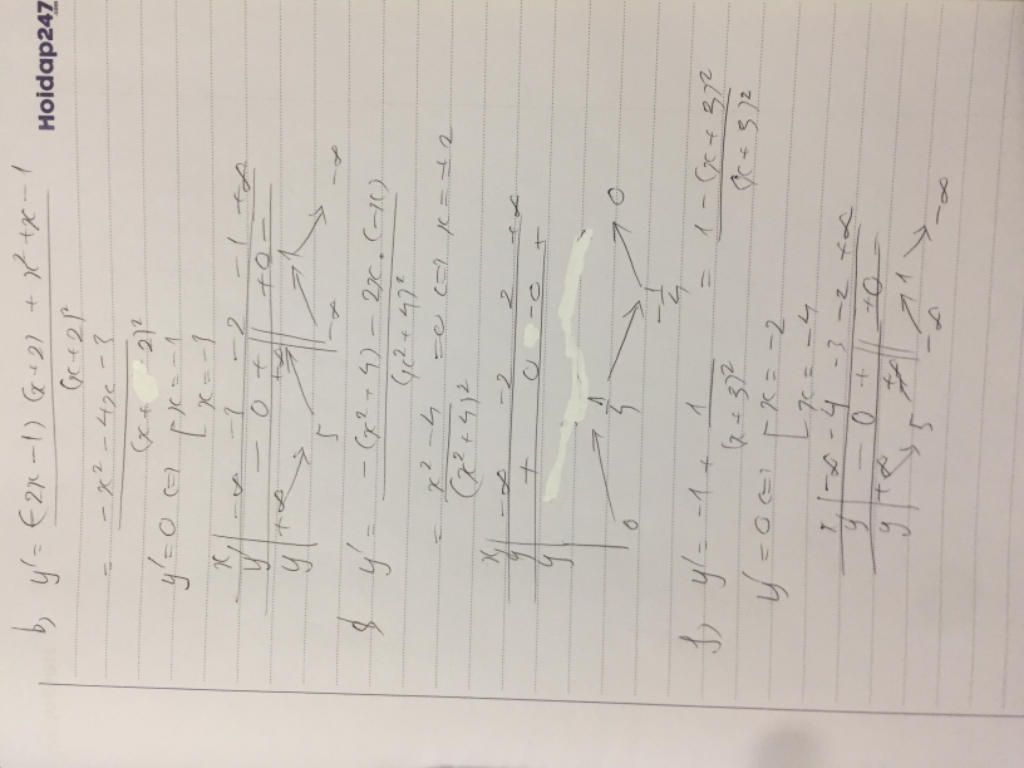 Hoidap247
b, y' = (-2x-1)(x+2) + x²+x-1
(x+2)²
= -x²-4x-3
(x+2)²
y'=0 <=> [ x=-1
x=-3
x | -∞ -3 -2 -1 +∞
y' | - 0 + || + 0 -
y | +∞ 5 +∞ || -∞ 1 -∞
y' = -(x²+4) - 2x.(-x)
(x²+4)²
= x²-4 =0 <=> x=±2
(x²+4)²
x | -∞ -2 2 +∞
y' | + 0 - 0 +
y
0 1/4 -1/4 0
f, y' = -1 + 1 = 1-(x+3)²
(x+3)² (x+3)²
y'=0 <=> [ x=-2
x=-4
x | -∞ -4 -3 -2 +∞
y' | - 0 + || + 0 -
y | +∞ 5 +∞ || -∞ 1 -∞